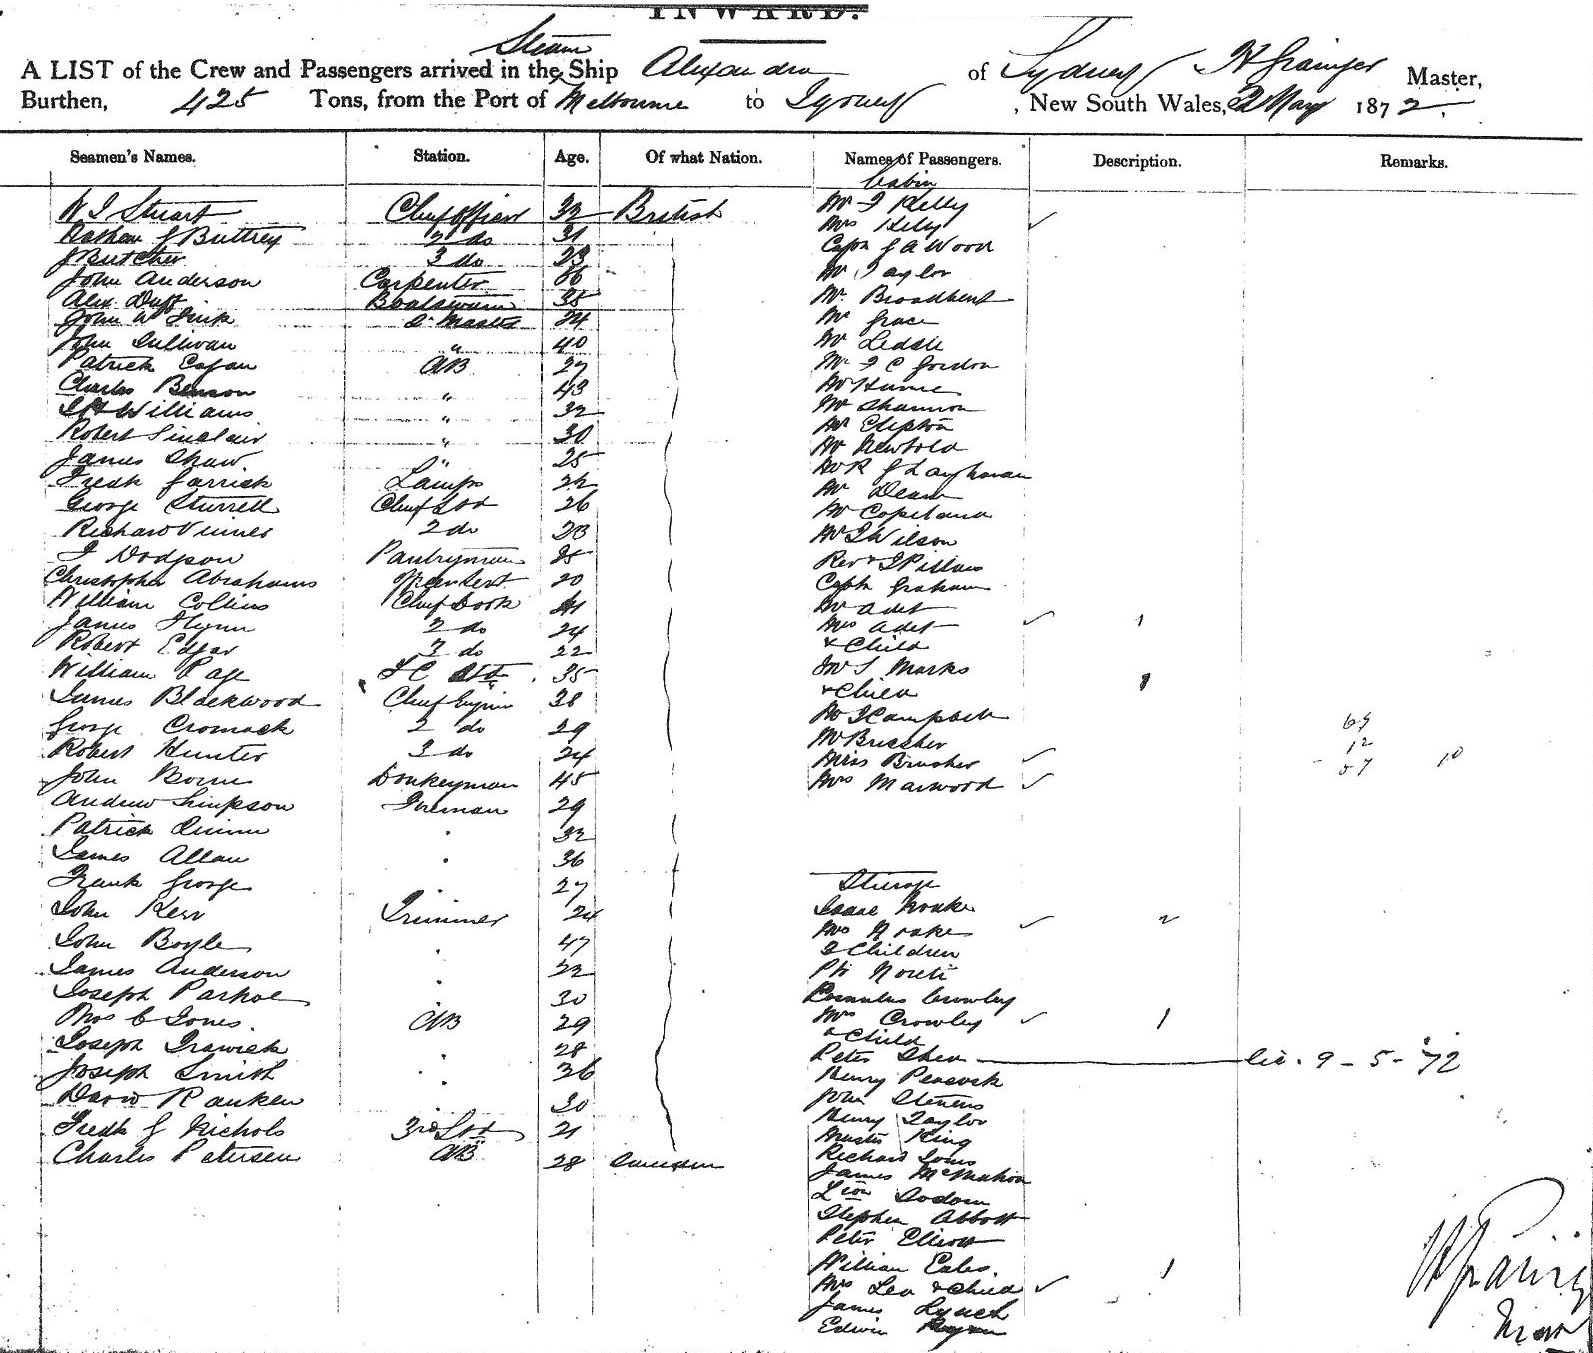 INWARD.
Steam
A LIST of the Crew and Passengers arrived in the Ship Alexandra of Sydney H Grainger Master,
Burthen, 425 Tons, from the Port of Melbourne to Sydney, New South Wales, 2 May 1872.
Seamen's Names. Station. Age. Of what Nation. Names of Passengers. Description. Remarks.
Cabin
W J Stuart Chief Officer 32 British Mr J Kelly
Mrs Kelly
Nathan J Buttrey 2 do 31 Capn J A Wood
J Butcher 3 do 23 Mr Taylor
John Anderson Carpenter 66
Alex. Duff Boatswain 35 Mr. Broadbent
John W Frick Q. Master 24 Mr Grace
John Sullivan " 40 Mr Leddie
Patrick Eagan AB 27 Mr J C Gordon
Charles Benson " 43 Mr Hume
Williams " 32 Mr Shannon
Robert Sinclair " 30 Mr Clipton
James Shaw. " 25 Mr Newbold
Fredk Garrick Lamps 22 Mr R J Langhanan
George Sturrell Chief Std 26 Mr Dean
Richard Vinner 2 do 23 Mr Copeland
Mr J Wilson
J Dodgson Pantryman 25 Revd J Pillars
Christopher Abrahams 20 Captn Graham
William Collins Chief Cook 41 Mr Adet
James Flynn 2 do 24 Mrs Adet 1
Robert Edgar 3 do 22 & Child
William Page F C Std 35 Mr S Marks
James Blackwood Chief Engineer 38 & Child 1
George Cromack 2 do 29 Mr J Campbell 69
Robert Hunter 3 do 24 Mr Bruscher 12
Miss Bruscher 57 10
John Borne Donkeyman 45 Mrs Marwood
Andrew Simpson Fireman 29
Patrick Quinn . 32
James Allan . 36
Frank George . 27 Steerage
John Kerr Trimmer 24 Isaac Noake
Mrs Noake 2
John Boyle . 47 2 Children
James Anderson . 22
Joseph Parkoe 30 Crowley
Thos C Jones. AB 29 Mrs Crowley 1
& Child
Joseph Trawick . 28 Peter Shea lic. 9-5-72
Joseph Smith . 36 Henry Peacock
David Ranken . 30 John Stevens
Henry Taylor
Fredk J Nichols 3rd Std 21 King
Charles Petersen AB 28 Richard Jones
James McMahon
Stephen Abbott
Peter Elliott
William Eales.
Mrs Leo & Child 1
James Lynch
Edwin
H Grainger